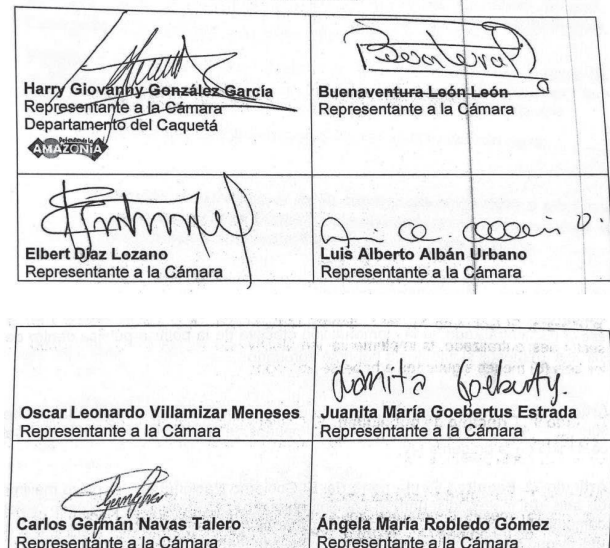 Harry Giovanny González García
Representante a la Cámara
Departamento del Caquetá
AMAZONÍA
Buenaventura León León
Representante a la Cámara
Elbert Díaz Lozano
Representante a la Cámara
Luis Alberto Albán Urbano
Representante a la Cámara
Oscar Leonardo Villamizar Meneses
Representante a la Cámara
Juanita Goebertus.
Juanita María Goebertus Estrada
Representante a la Cámara
Carlos Germán Navas Talero
Representante a la Cámara
Ángela María Robledo Gómez
Representante a la Cámara